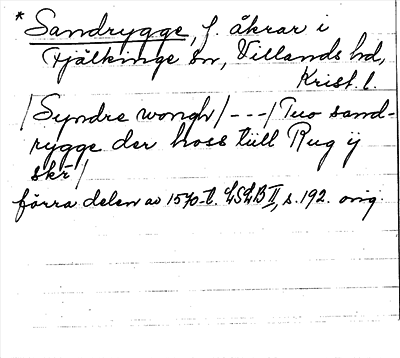 * Sandrygge, f. åkrar i
Fjälkinge sn, Villands hd,
Krist. l.
/Syndre wongh/ --- / Tuo sand-
rygge der hoss tüll Rug ÿ
skr /
förra delen av 1570-t. LSLB II, s. 192. orig.